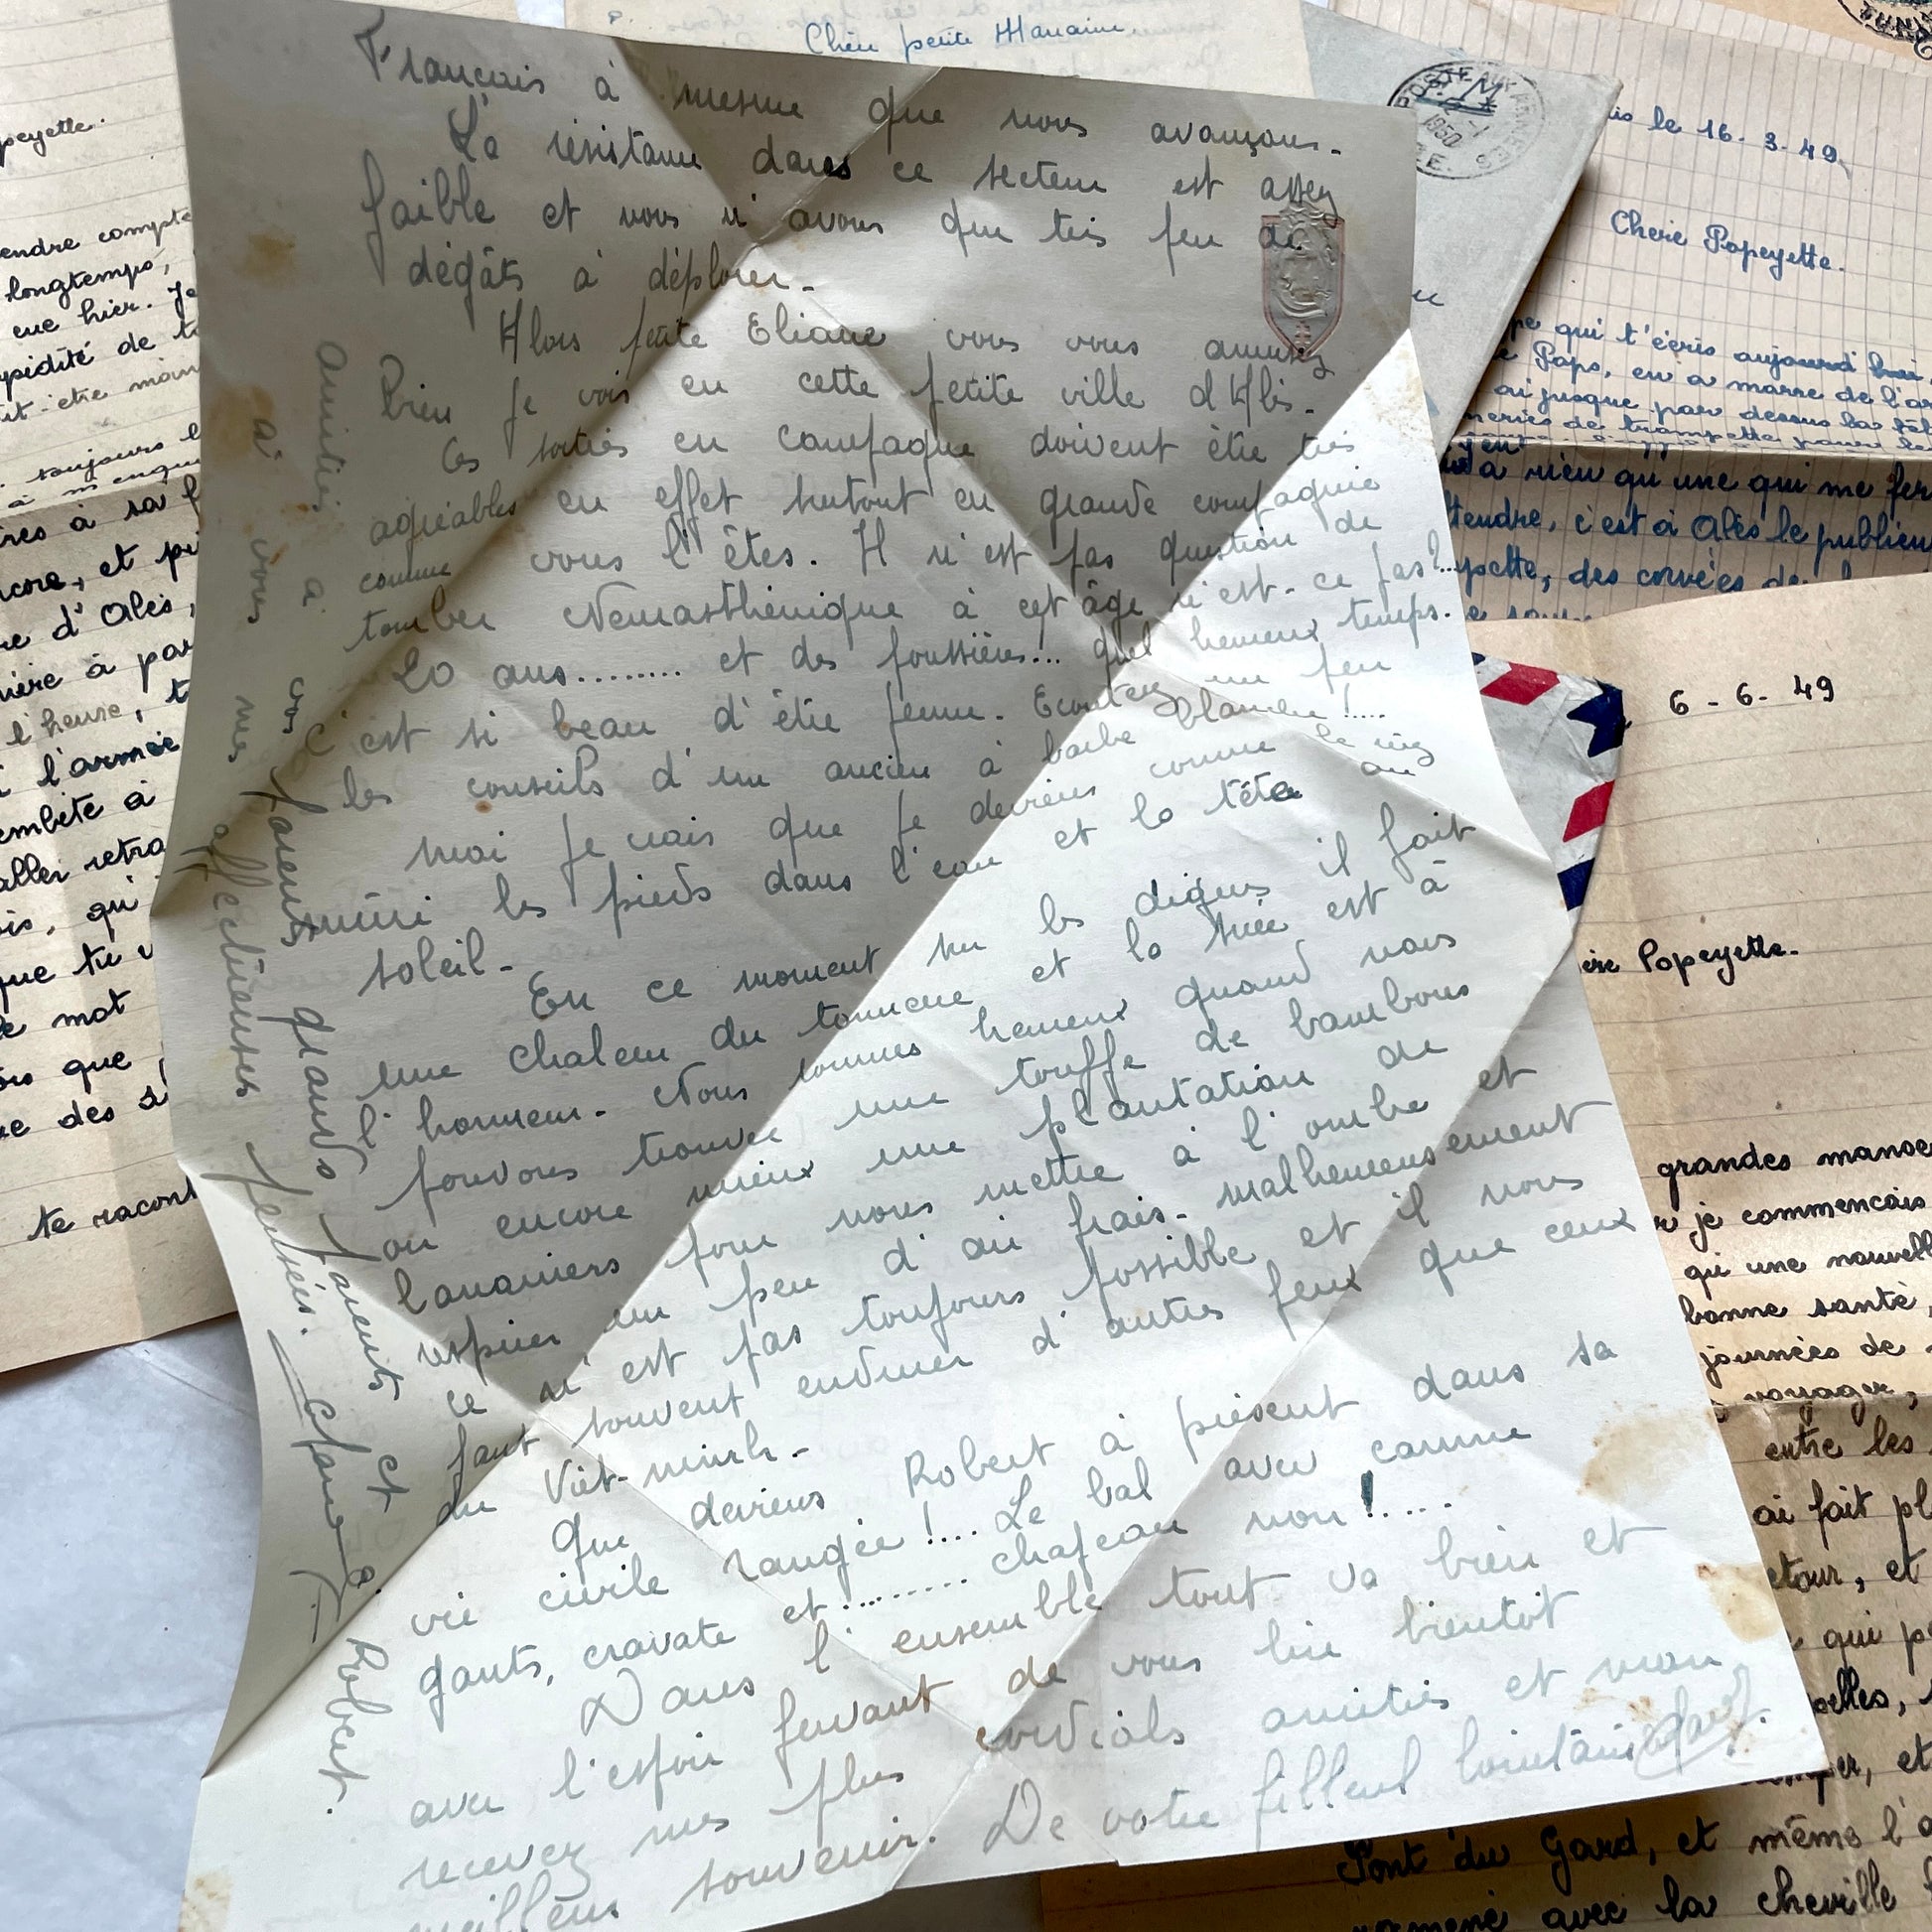 Français à mesure que nous avançons.
La résistance dans ce secteur est assez
faible et nous n'avons que très peu de
dégâts à déplorer.
Alors petite Eliane vous vous amusez
bien je vois en cette petite ville d'Albi.
Ces sorties en campagne doivent être très
agréables en effet surtout en grande compagnie
comme vous l'êtes. Il n'est pas question de
tomber Neurasthénique à cet âge n'est-ce pas?...
20 ans......... et des poussières... quel heureux temps.
C'est si beau d'être jeune. Ecoutez un peu
les conseils d'un ancien à barbe blanche!....
Moi je crois que je deviens comme le riz
mûri les pieds dans l'eau et la tête au
soleil.
En ce moment sur les digues il fait
une chaleur du tonnerre et la suée est à
l'honneur. Nous sommes heureux quand nous
pouvons trouver une touffe de bambous
ou encore mieux une plantation de
bananiers pour nous mettre à l'ombre et
respirer un peu d'air frais. Malheureusement
ce n'est pas toujours possible et il nous
faut souvent endurer d'autres feux que ceux
du Viet-minh.
Que deviens Robert à présent dans sa
vie civile rangée!... Le bal avec canne
gants, cravate et......... chapeau non!.....
Dans l'ensemble tout va bien et
avec l'espoir fervant de vous lire bientôt
recevez mes plus cordials amitiés et mon
meilleur souvenir. De votre filleul lointain
amitiés à vos parents grands parents et Robert.
à vous mes affectueuses pensées.
Chère petite Marraine
POSTE AUX ARMEES
1950
le 16-3-49
Chère Popeyette.
qui t'écris aujourd'hui
Paps, en a marre de l'ar
ai jusque par dessus la tête
a rien qu'une qui me fer
ttendre, c'est à Alès le publieu
des corvées de
6-6-49
Popeyette.
grandes manoe
je commencais
qu'une nouvell
bonne santé,
journées de
voyager,
entre les
ai fait pl
etour, et
qui pe
oelles,
et
Pont du Gard, et même l'a
ramené avec la cheville
peyette.
endre compte
longtemps,
eue hier. Je
pidité de t
toujours l
res à sa f
ncore, et pui
re d'Alès,
nière à par
l'heure, t
l'armée
embête à
aller retra
is, qui
que tu v
le mot
que
ue des s
te racont